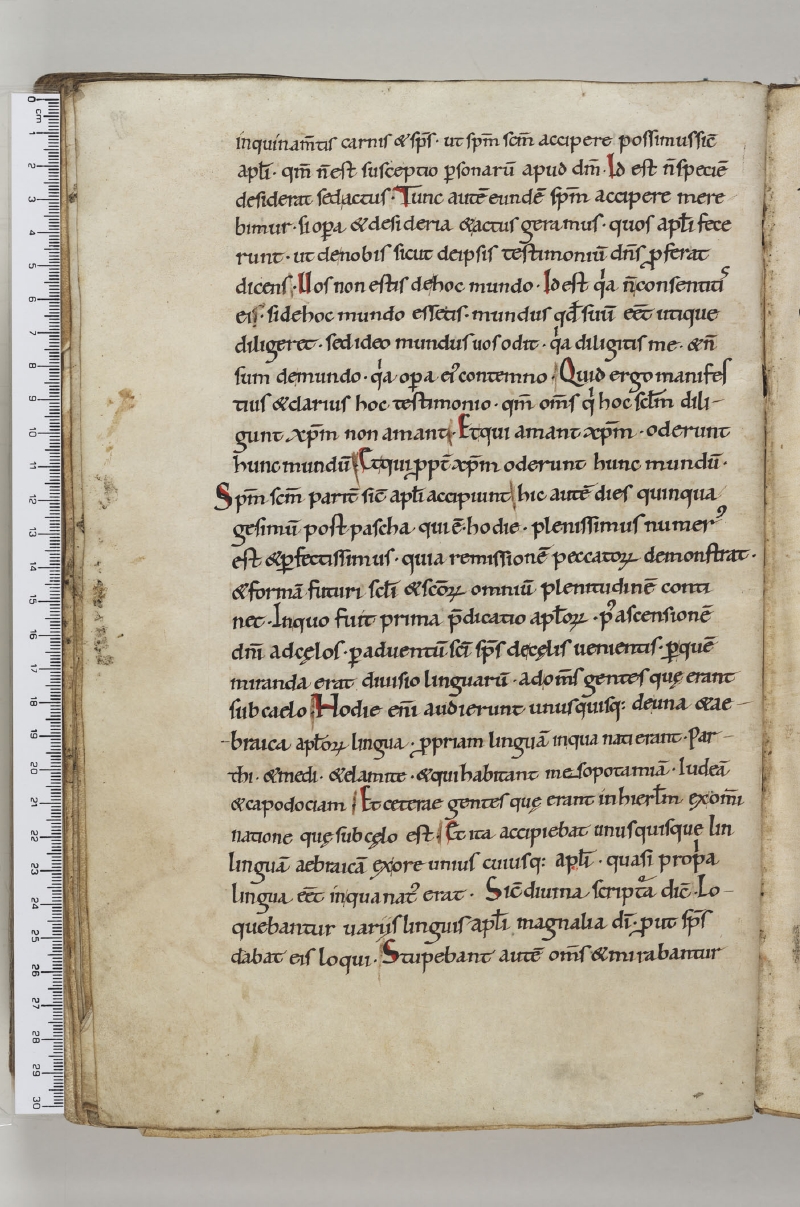 inquinam̄tis carnis & sp̄s · ut sp̄m sc̄m accipere possimus sic̄
apl̄i · qm̄ n̄ est susceptio ꝑsonarū apud dm̄ · Id est n̄ speciē
desiderat sed actus · Tunc autē eundē sp̄m accipere mere
bimur · si oꝑa & desideria & actus geramus · quos apl̄i fece
runt · ut de nobis sicut de ipsis testimoniū dn̄s ꝓferat
dicens · Uos non estis de hoc mundo · Id est q̇a n̄ consentitꝰ
eis · si de hoc mundo essetis · mundus qđ suū eēt utique
diligeret · sed ideo mundus uos odit · q̇a diligitis me · & n̄
sum de mundo · q̇a oꝑa eiꝰ contemno · Quid ergo manifes
tius & clarius hoc testimonio · qm̄ om̄s q̇ hoc scl̄m dili-
gunt xp̄m non amant · Et qui amant xp̄m · oderunt
hunc mundū · Et qui ꝓpt̄ xp̄m oderunt hunc mundū ·
Sp̄m sc̄m parit̄ sic̄ apl̄i accipiunt · hic autē dies quinqua
gesimū post pascha qui ē hodie · plenissimus numerꝰ
est & ꝑfectissimus · quia remissionē peccatoꝝ demonstrat ·
& formā futuri scl̄i & sc̄oꝝ omniū plenitudinē conti
net · In quo fuit prima p̄dicatio apl̄oꝝ · pꝰ ascensionē
dn̄i ad cęlos · ꝑ aduentū sc̄i sp̄s de cęlis uenientis · ꝑ quē
miranda erat diuisio linguarū · ad om̄s gentes quę erant
sub caelo · Hodie eni̅ audierunt unusquisq: de una & ae-
braica apl̄oꝝ lingua · ꝓpriam linguā in qua nati erant · Par-
thi · & medi · & elamite · & qui habitant mesopotamiā · Iudeā
& capodociam · Et ceterae gentes quę erant in hierl̄m ex om̄i
natione quę sub cęlo est · Et ita accipiebat unusquisque lin
linguā aebraicā ex ore unius cuiusq: apl̄i · quasi propͥa
lingua eēt in qua natꝰ erat · Sic̄ diuina scriptͣa dic̄ · Lo-
quebantur uariis linguis apl̄i magnalia dī · ꝓut sp̄s
dabat eis loqui · Stupebant autē om̄s & mirabantur
0 cm 1 2 3 4 5 6 7 8 9 10 11 12 13 14 15 16 17 18 19 20 21 22 23 24 25 26 27 28 29 30